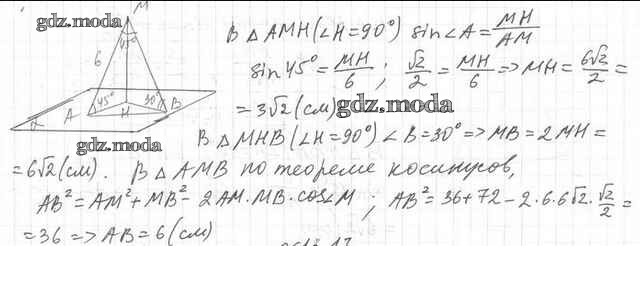 gdz.moda
M
6
45°
30°
A
H
B
α
gdz.moda
В △ AMH (∠H=90°) sin∠A = MH/AM
sin 45° = MH/6 ; √2/2 = MH/6 => MH = 6√2/2 =
= 3√2 (см) gdz.moda
В △ MHB (∠H=90°) ∠B=30° => MB = 2MH =
= 6√2 (см). В △ AMB по теореме косинусов,
AB² = AM² + MB² - 2AM·MB·cos∠M ; AB² = 36+72 - 2·6·6√2·√2/2 =
= 36 => AB = 6 (см)